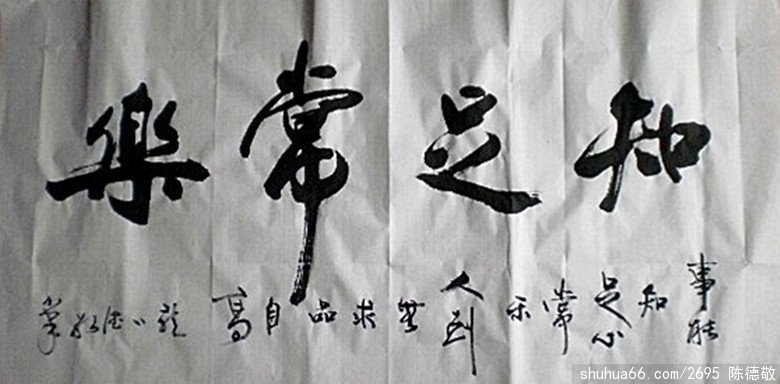 知足常樂
事能知足心常乐人到無求品自高
德敬筆
shuhua66.com/2695 陈德敬